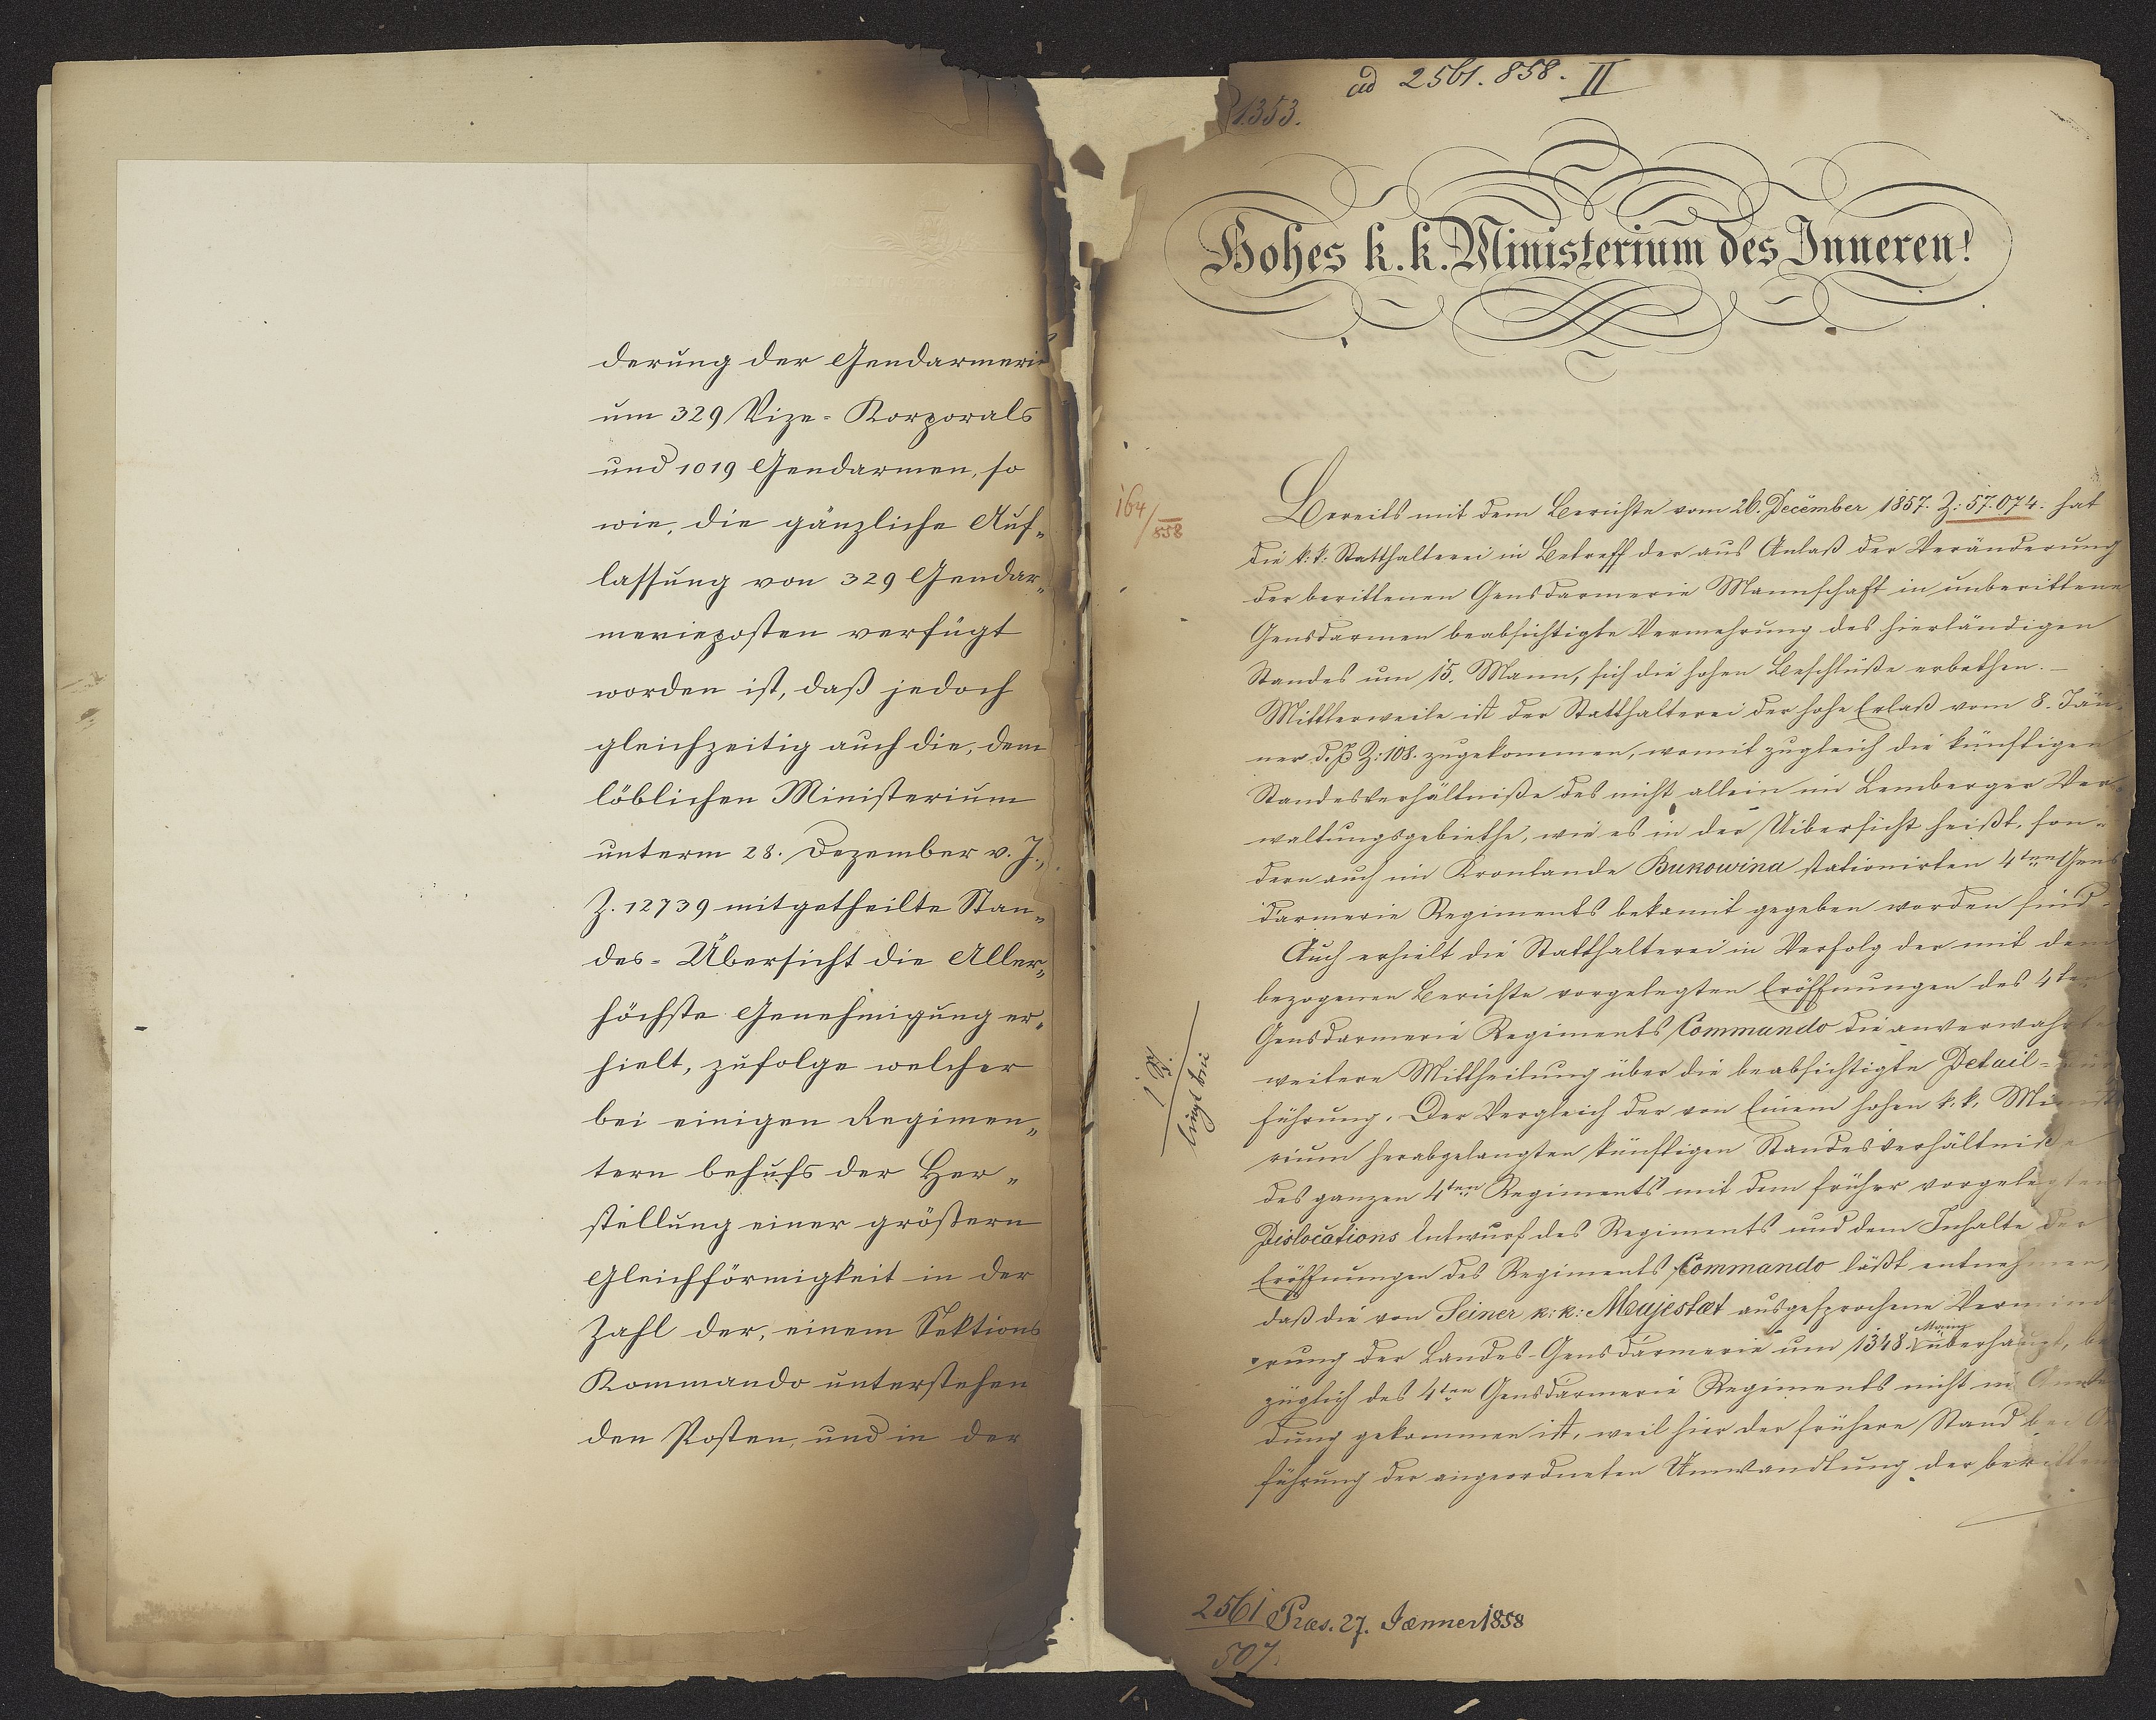 derung der Gendarmerie
um 329 Vize-Korporals
und 1019 Gendarmen, so
wie, die gänzliche Auf„
lassung von 329 Gendar„
merieposten verfügt
worden ist, daß jedoch
gleichzeitig auch die, dem
löblichen Ministerium
unterm 28. Dezember v. J.,
Z. 12739 mitgetheilte Stan„
des-Übersicht die Aller„
höchste Genehmigung er„
hielt, zufolge welcher
bei einigen Regimen„
tern behufs der Her„
stellung einer größern
Gleichförmigkeit in der
Zahl der, einem Sektions
Kommando unterstehen
den Posten, und in der
ad 2561. 858. II
1353.
Hohes k. k. Ministerium des Inneren!
164/858
Bereits mit dem Berichte vom 26. December 1857. Z: 57.074. hat
die k: k: Statthalterei in Betreff der aus Anlaß der Veränderung
der berittenen Gensdarmerie Mannschaft in unberittene
Gensdarmen beabsichtigte Vermehrung des hierländigen
Standes um 15. Mann, sich die hohen Beschlüße erbethen.–
Mittlerweile ist der Statthalterei der hohe Erlaß vom 8. Jän-
ner d. J. Z: 108. zugekommen, womit zugleich die künftigen
Standesverhältniße des nicht allein im Lemberger Ver-
waltungsgebiethe, wie es in der Uibersicht heißt, son-
dern auch im Kronlande Bukowina stationirten 4ten Gens
darmerie Regiments bekannt gegeben worden sind.
Auch erhielt die Statthalterei in Verfolg der mit dem
bezogenen Berichte vorgelegten Eröffnungen des 4ten
Gensdarmerie Regiments Commando die anverwahrte
weitere Mittheilung über die beabsichtigte Detail-
führung. Der Vergleich der von Einem hohen k. k. Minist
rium herabgelangten künftigen Standesverhältniße
des ganzen 4ten Regiments mit dem früher vorgelegten
Dislocations Entwurf des Regiments und dem Inhalte der
Eröffnungen des Regiments Commando läßt entnehmen,
daß die von Seiner k: k: Majestæt ausgesprochene Vermind
rung der Landes-Gensdarmerie um 1348. Mann überhaupt, be
züglich des 4ten Gensdarmerie Regiments nicht in
dung gekommen ist, weil hier der frühere Stand bei
führung der angeordneten Umwandlung der beritten
2561 Præs. 27. Jænner 1858
507.